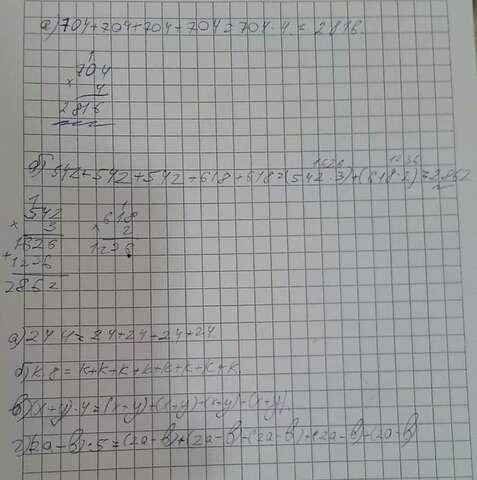 а) 704+704+704+704=704·4=2816.
1
704
× 4
2816
б) 542+542+542+618+618=(542·3)+(618·2)=2862
1626 1236
1 1
542 618
× 3 × 2
1626 1236
+1236
2862
а) 24·4=24+24+24+24.
б) k·8=k+k+k+k+k+k+k+k
в) (x+y)·4=(x+y)+(x+y)+(x+y)+(x+y)
г) (2a-b)·5=(2a-b)+(2a-b)+(2a-b)+(2a-b)+(2a-b)